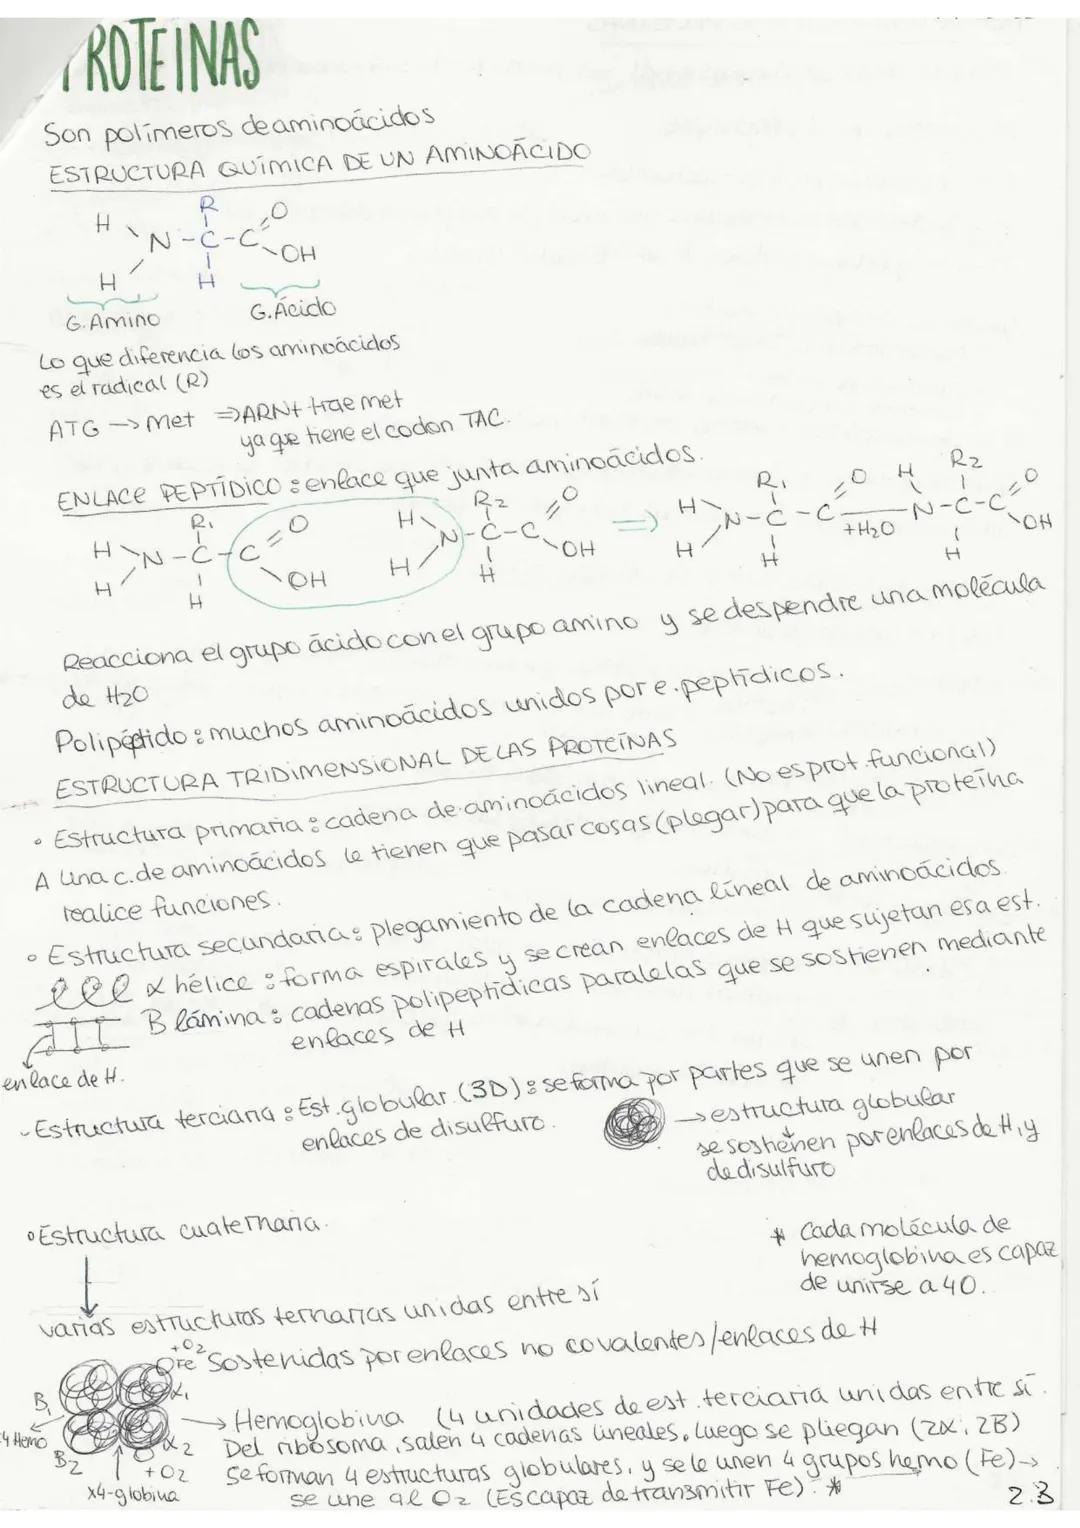 PROTEINAS
Son polímeros de aminoácidos
ESTRUCTURA QUÍMICA DE UN AMINOÁCIDO
H R O
N-C-C
H H OH
G. Amino G. Ácido
Lo que diferencia los aminoácidos
es el radical (R)
ATG → Met ⇒ ARNt trae met
ya que tiene el codon TAC.
ENLACE PEPTÍDICO: enlace que junta aminoácidos.
H R1 O H R2 O ⇒ H R1 O H R2 O
N-C-C N-C-C N-C-C N-C-C
H H OH H H OH H H +H2O H OH
Reacciona el grupo ácido con el grupo amino y se despendre una molécula
de H2O
Polipéptido: muchos aminoácidos unidos por e. peptídicos.
ESTRUCTURA TRIDIMENSIONAL DE LAS PROTEÍNAS
• Estructura primaria: cadena de aminoácidos lineal. (No es prot. funcional)
A una c. de aminoácidos le tienen que pasar cosas (plegar) para que la proteína
realice funciones.
• Estructura secundaria: plegamiento de la cadena líneal de aminoácidos.
α hélice: forma espirales y se crean enlaces de H que sujetan esa est.
B lámina: cadenas polipeptídicas paralelas que se sostienen mediante
enlaces de H
enlace de H.
- Estructura terciaria: Est. globular (3D): se forma por partes que se unen por
enlaces de disulfuro.
→ estructura globular
se sostienen por enlaces de H, y
de disulfuro
• Estructura cuaternaria.
* Cada molécula de
hemoglobina es capaz
de unirse a 4O.
varias estructuras ternarias unidas entre sí
+O2
Fe Sostenidas por enlaces no covalentes/enlaces de H
B1 α1
→ Hemoglobina (4 unidades de est. terciaria unidas entre sí.
4 Hemo α2 Del ribosoma, salen 4 cadenas lineales, luego se pliegan (2α, 2B)
B2 +O2 Se forman 4 estructuras globulares, y se le unen 4 grupos hemo (Fe)→
x4-globina se une al O2 (Es capaz de transmitir Fe). *
2.3